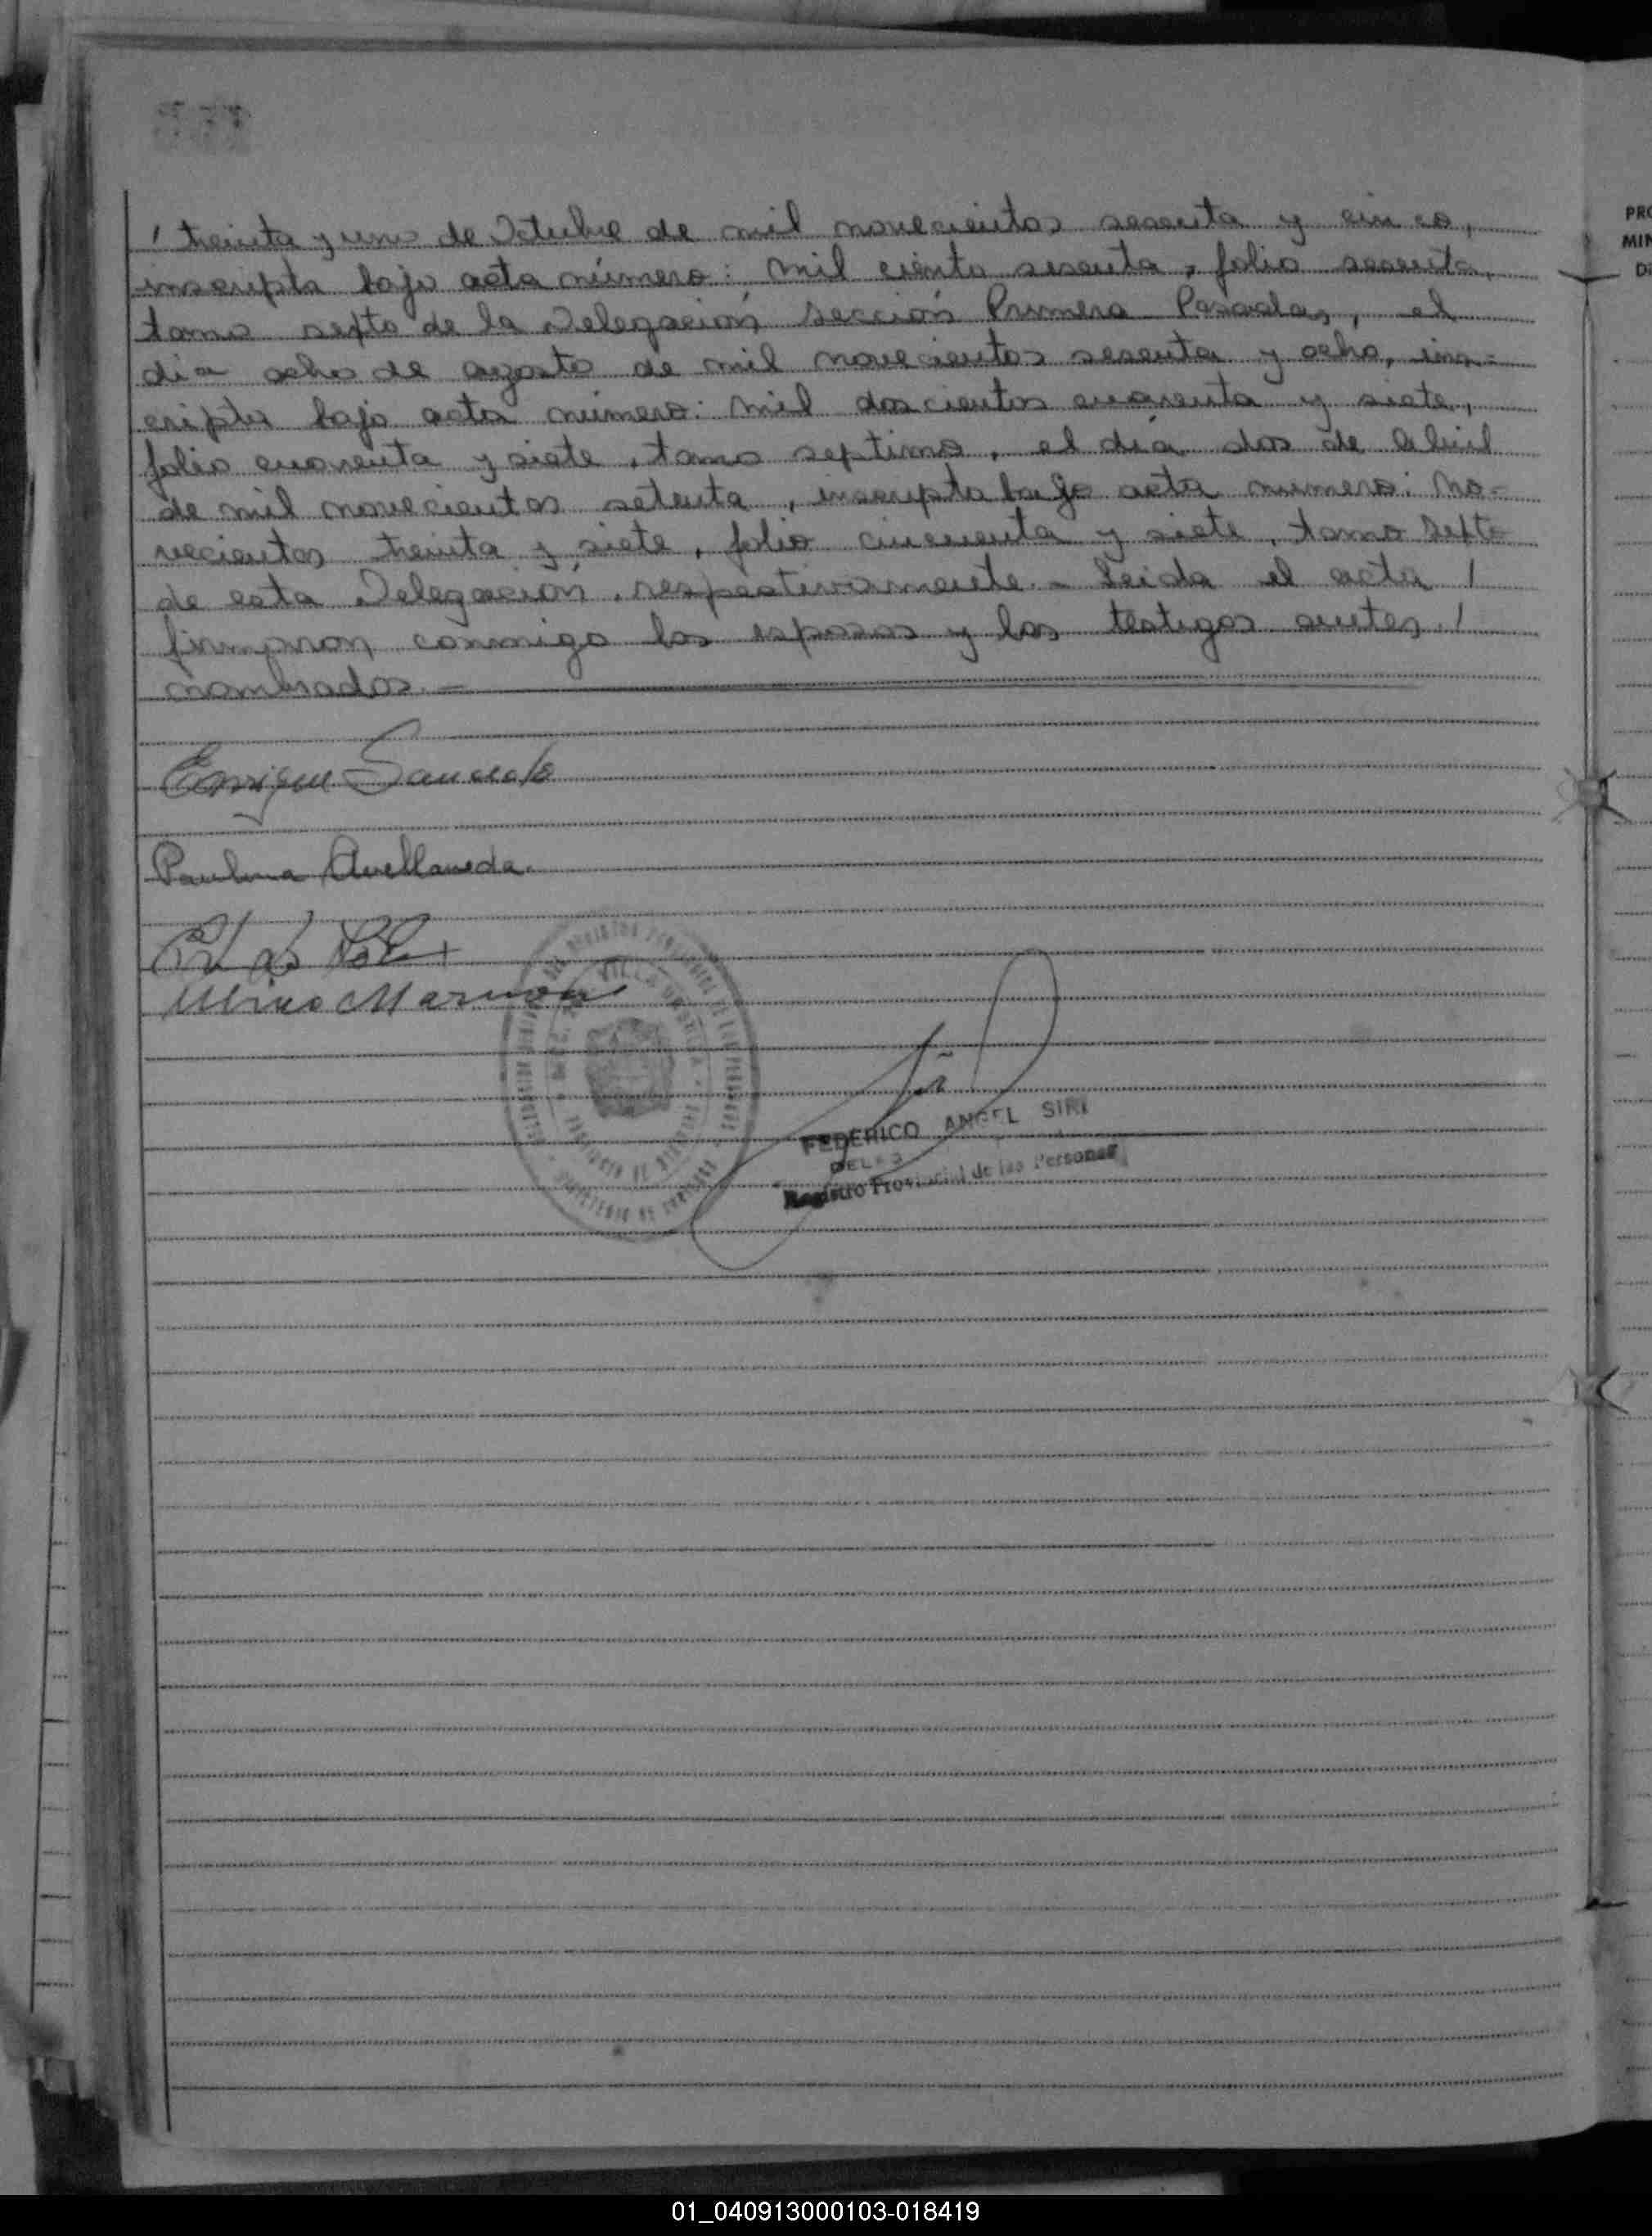 / treinta y uno de Octubre de mil novecientos sesenta y cinco,
inscripta bajo acta número: mil ciento sesenta, folio sesenta,
tomo sexto de la Delegación Sección Primera Posadas, el
día ocho de agosto de mil novecientos sesenta y ocho, ins=
cripta bajo acta número: mil doscientos cuarenta y siete,
folio cuarenta y siete, tomo septimo, el día dos de Abril
de mil novecientos setenta, inscripta bajo acta numero: no=
vecientos treinta y siete, folio cincuenta y siete, tomo sexto
de esta Delegación, respectivamente.- Leida el acta /
firmaron conmigo los esposos y los testigos antes /
nombrados.-
Enrique
Paulina Avellaneda
FEDERICO ANGEL SIRI
Registro Provincial de las Personas
PRO
MIN
01_040913000103-018419